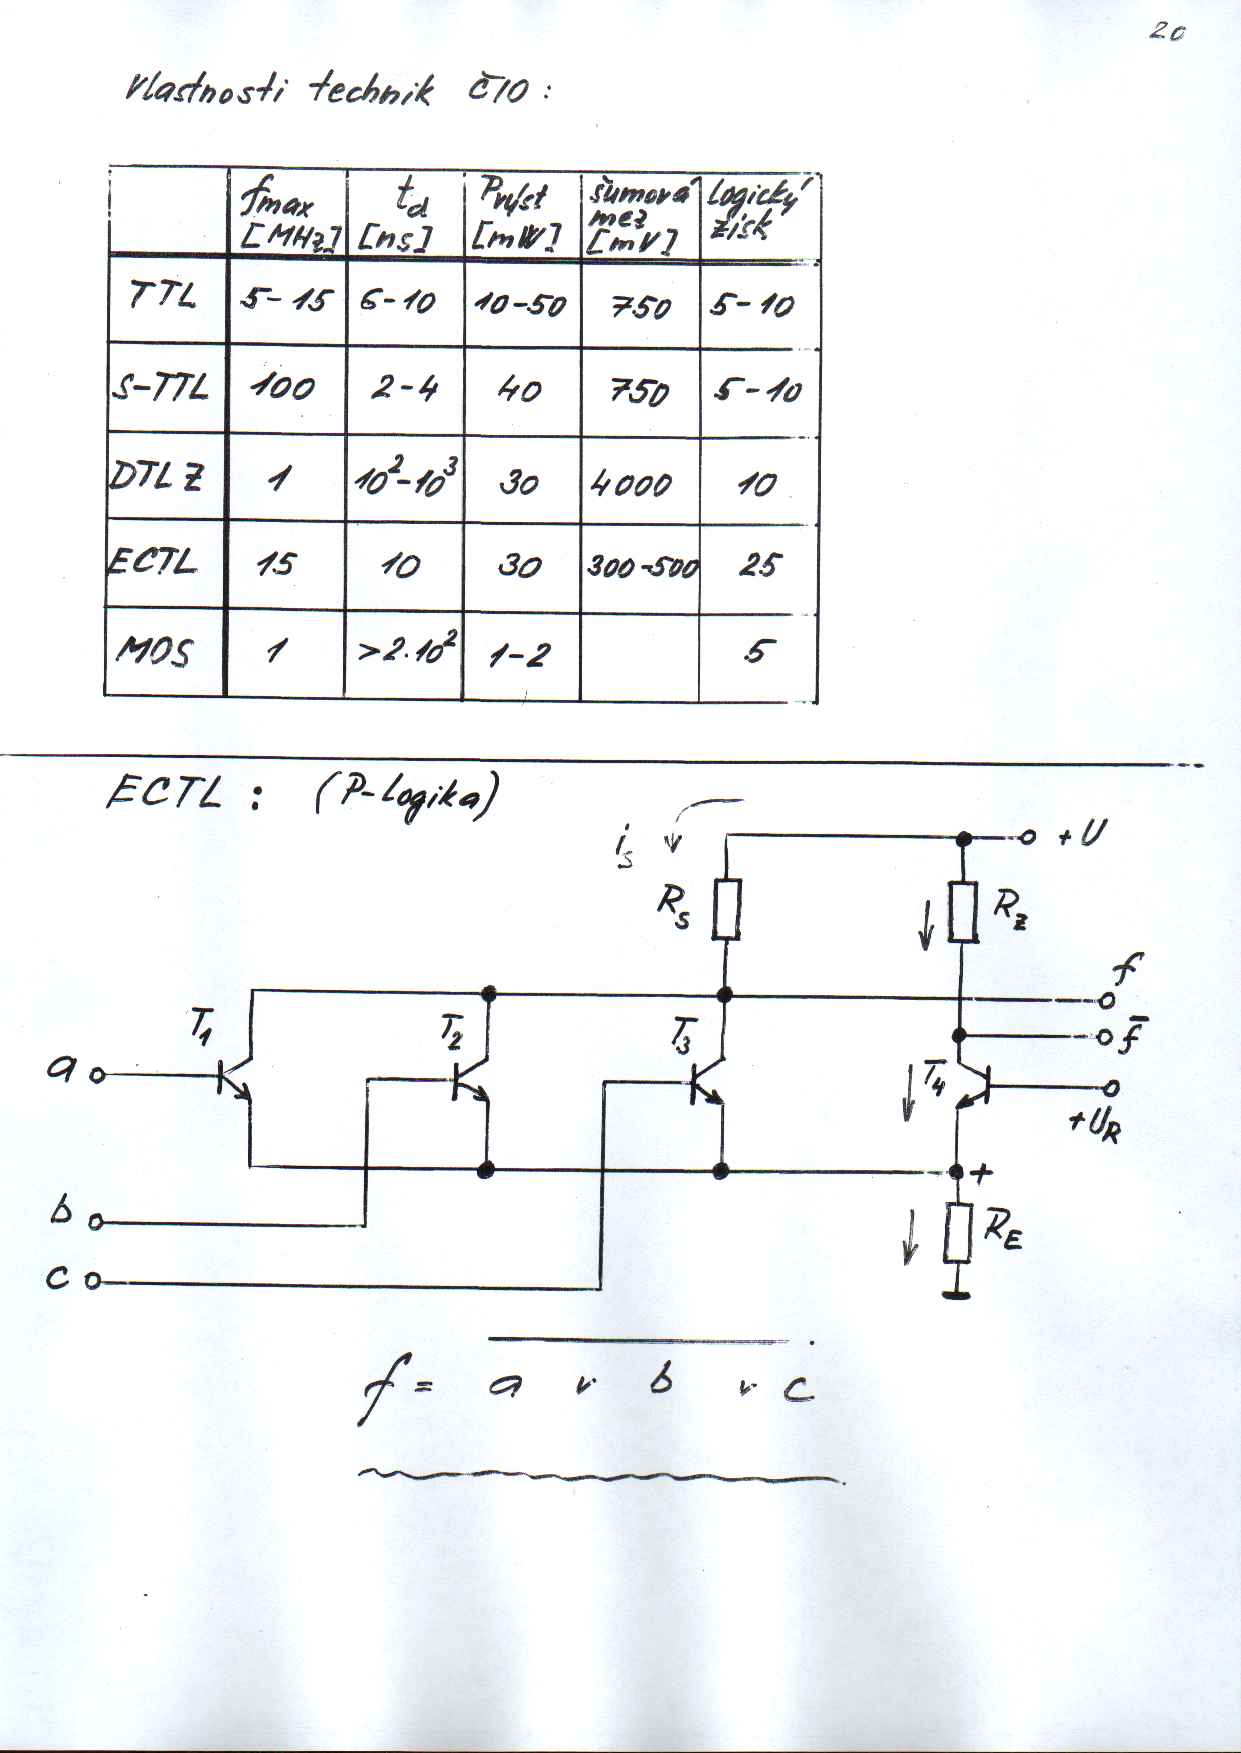 20
Vlastnosti technik ČIO :
fmax [MHz] td [ns] Pvýst [mW] šumová mez [mV] logický zisk
TTL 5-15 6-10 10-50 750 5-10
S-TTL 100 2-4 40 750 5-10
DTL Z 1 10²-10³ 30 4000 10
ECTL 15 10 30 300-500 25
MOS 1 >2.10² 1-2 5
ECTL : (P-logika)
is
+U
Rs
Rz
f
T1
T2
T3
f̅
a
T4
+UR
+
b
RE
c
f = a̅ ̅v̅ ̅b̅ ̅v̅ ̅c̅